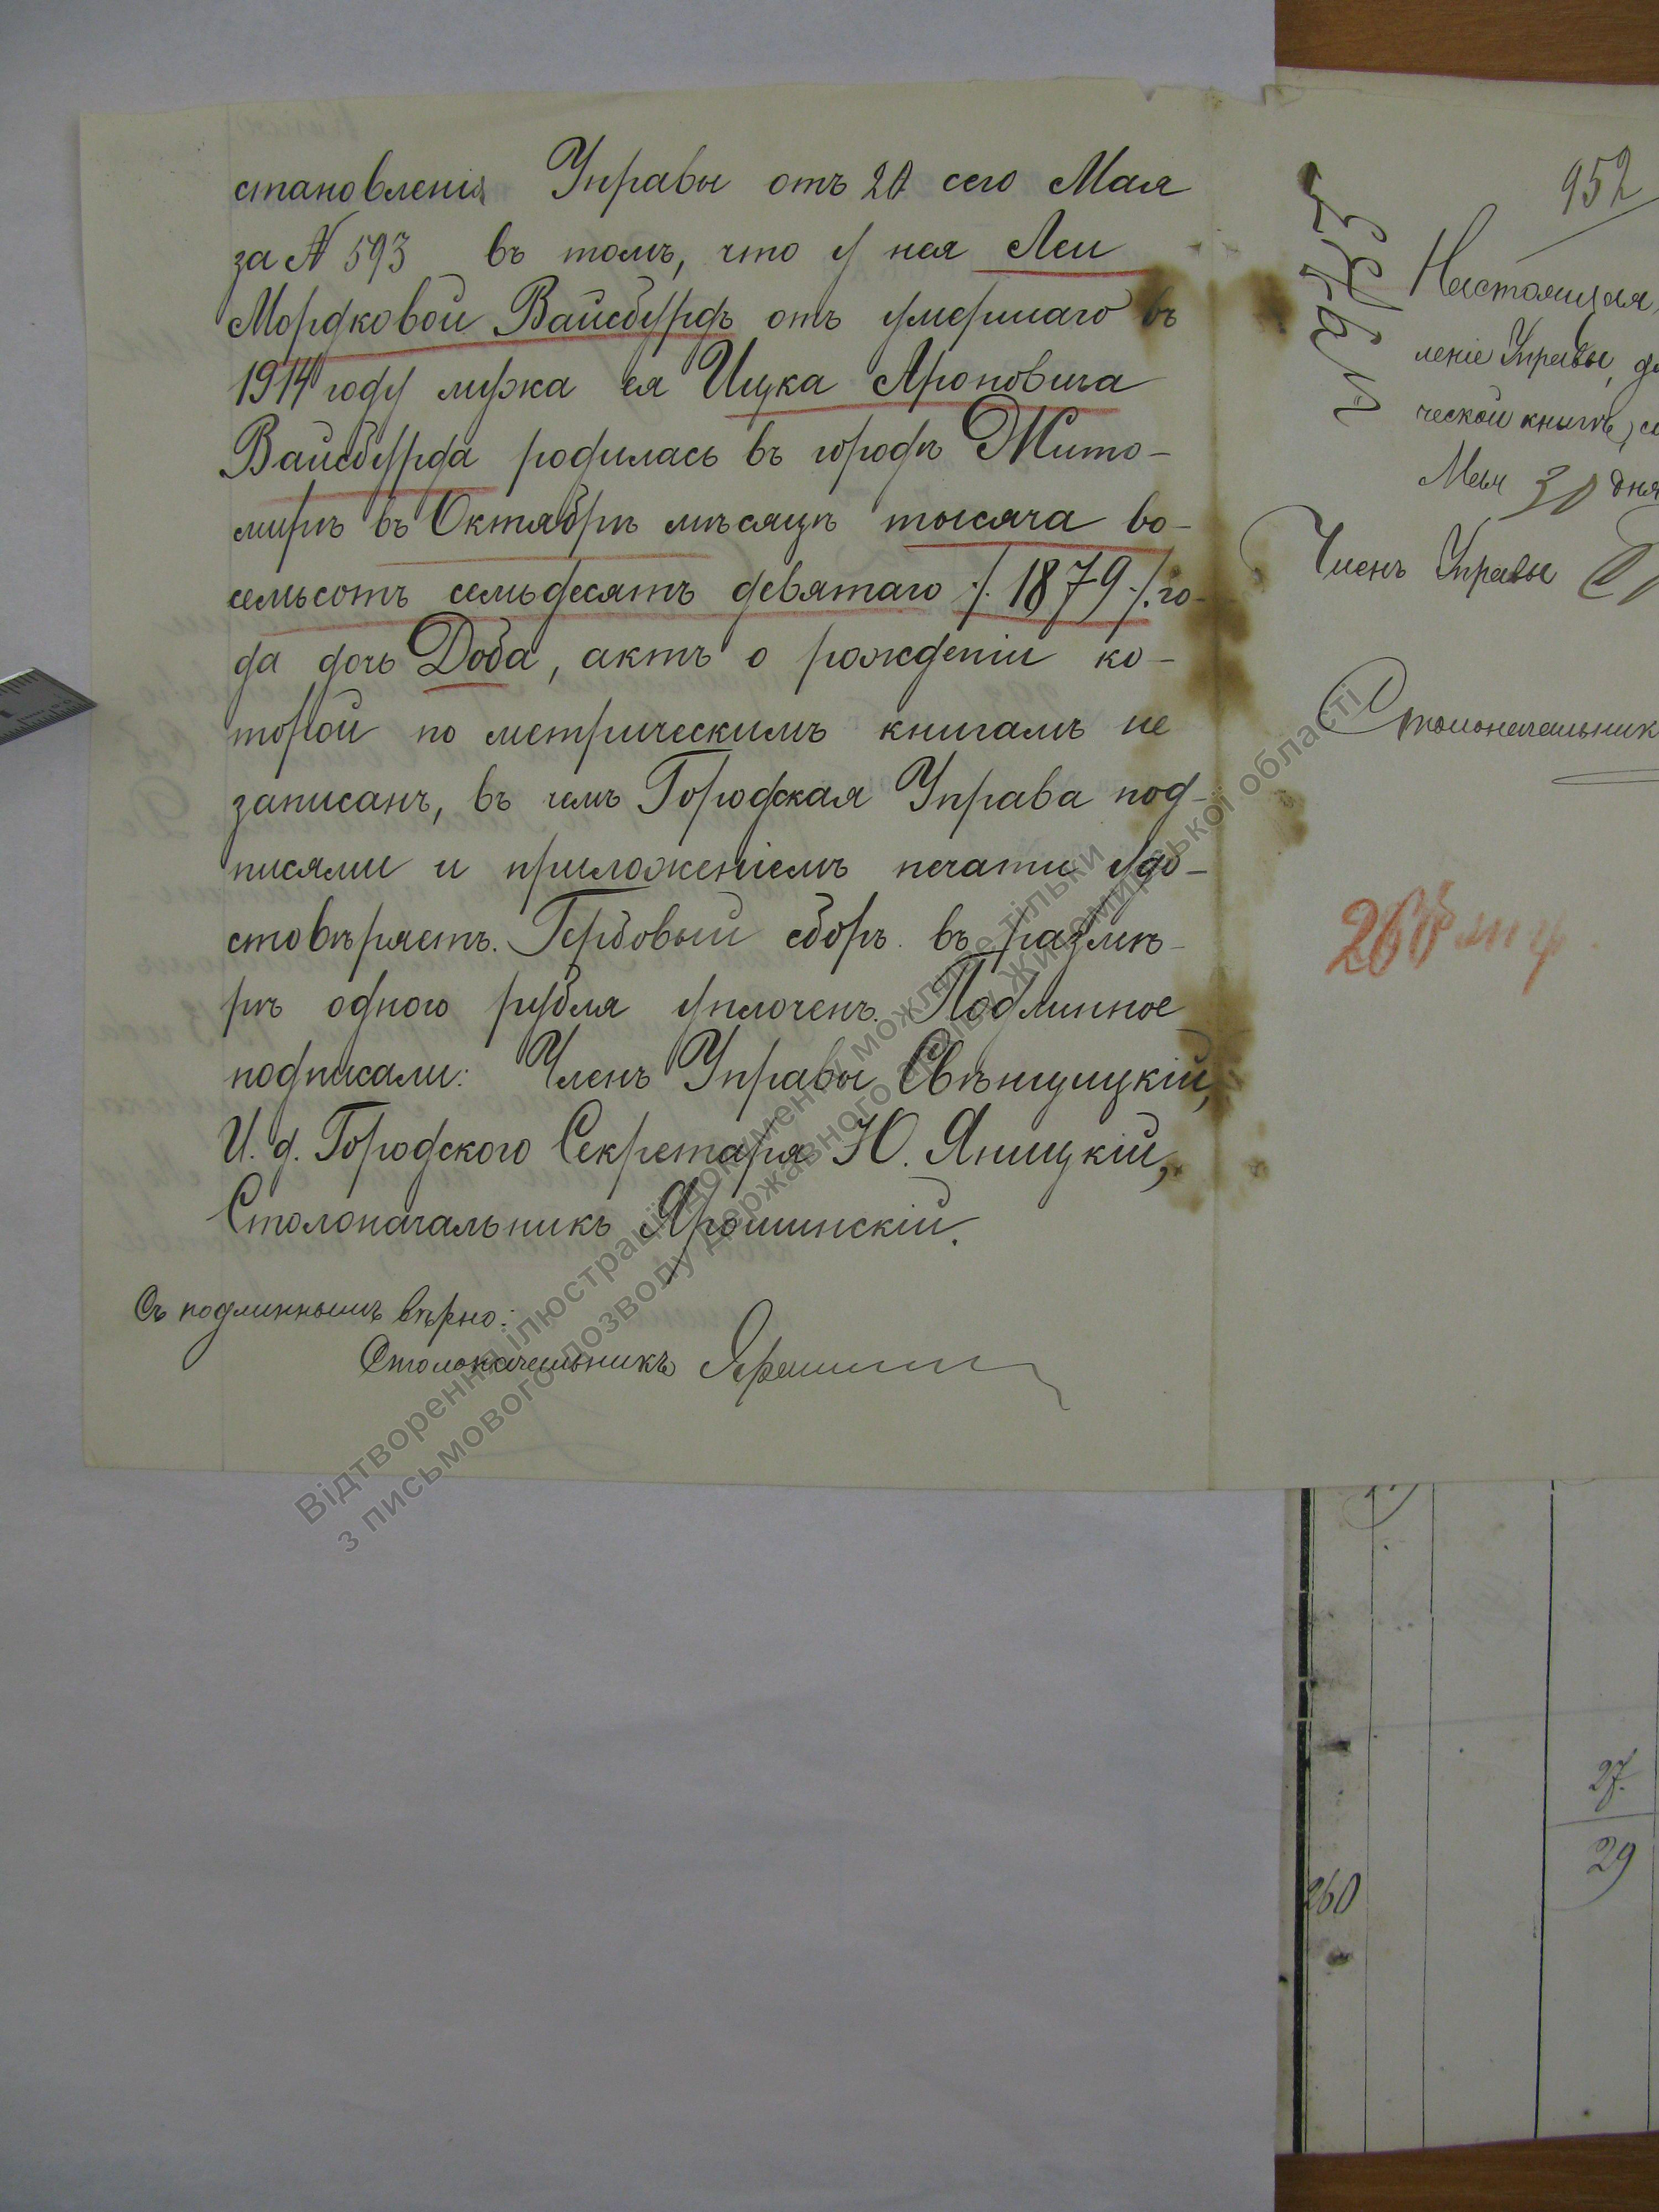 становленія Управы отъ 20 сего Мая
за № 593 въ томъ, что у нея Леи
Мордковой Вайсбурдъ отъ умершаго въ
1914 году мужа ея Ицка Ароновича
Вайсбурда родилась въ городѣ Жито-
мирѣ въ Октябрѣ мѣсяцѣ тысяча во-
семьсотъ семьдесятъ девятаго /. 1879 ./. го-
да дочь Доба, актъ о рожденіи ко-
торой по метрическимъ книгамъ не
записанъ, въ чемъ Городская Управа под-
писями и приложеніемъ печати удо-
стовѣряетъ. Гербовый сборъ въ размѣ-
рѣ одного рубля уплоченъ. Подлинное
подписали: Членъ Управы Свѣнцицкій,
И. д. Городского Секретаря Ю. Яницкій,
Столоначальникъ Ярошинскій.
Съ подлиннымъ вѣрно:
Столоначальникъ
952
Настоящая
леніе Управы,
ческой книгѣ,
Мая 30 дня
Членъ Управы
Столоначальник
260
27.
29
260
Відтворення ілюстрації документу можливе тільки
з письмового дозволу Державного архіву Житомирської області